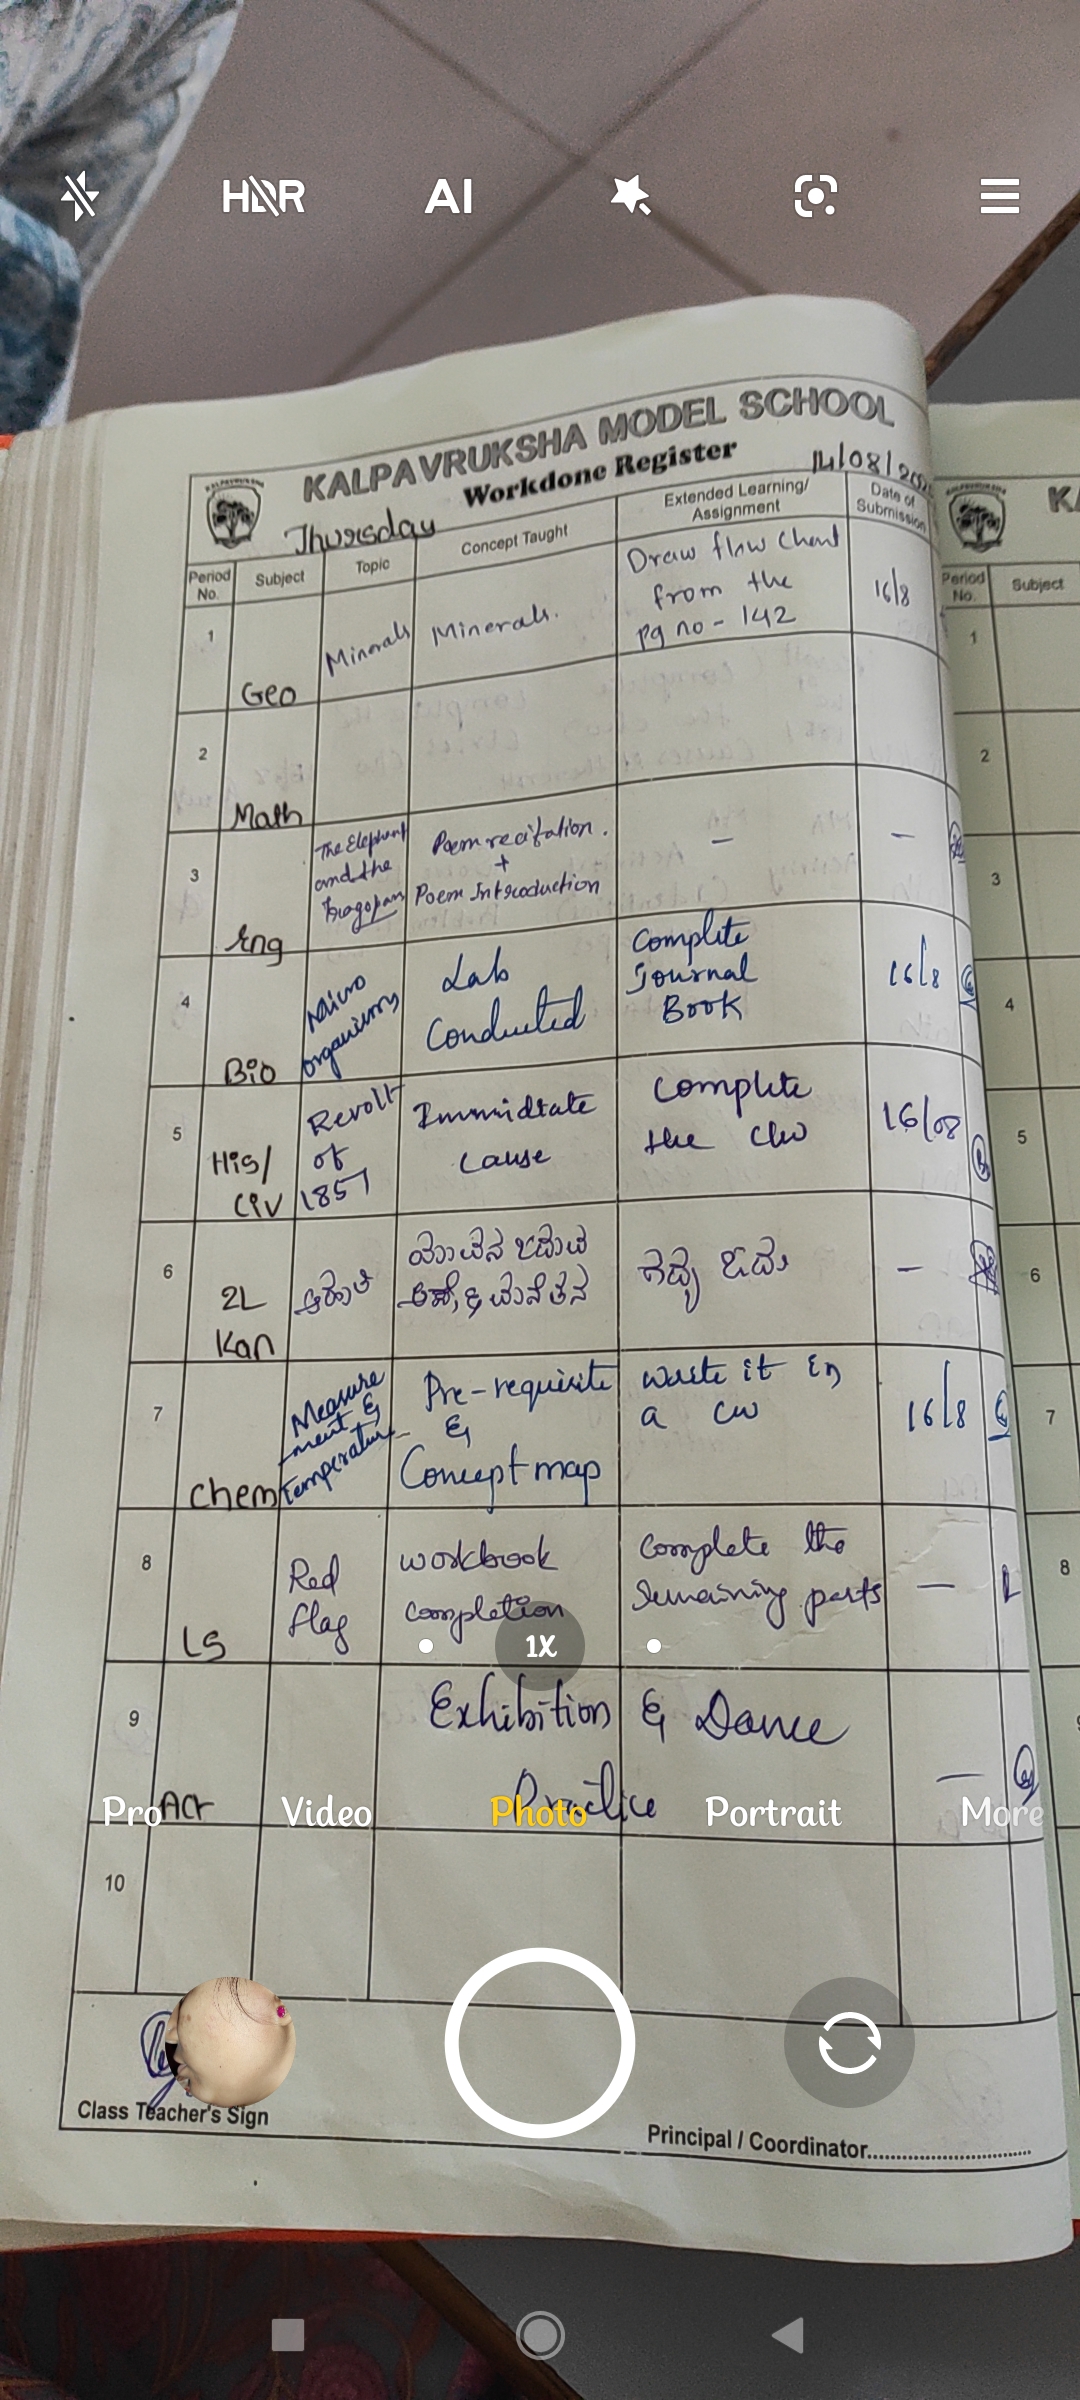 HDR AI
KALPAVRUKSHA MODEL SCHOOL
Workdone Register
14/08/202
Thursday
Period No.
Subject
Topic
Concept Taught
Extended Learning/ Assignment
Date of Submission
1
Geo
Minerals
Minerals.
Draw flow Chart
from the
pg no - 142
16/8
2
Math
3
Eng
The Elephant
and the
Tragopan
Poem recitation.
+
Poem Introduction
—
—
4
Bio
Micro
organisms
Lab
Conducted
Complete
Journal
Book
16/8
5
His/
Civ
Revolt
of
1857
Immidtate
cause
Complete
the CW
16/08
6
2L
Kan
ಗದ್ಯ ಓದು
—
7
Chem
Measure
-ment &
Temperature
Pre-requisite
&
Concept map
write it in
a CW
16/8
8
LS
Red
flag
workbook
completion
Complete the
remaining parts
—
9
Act
Exhibition & Dance
Practice
—
10
Class Teacher's Sign
Principal / Coordinator
KA
Period No.
Subject
1
2
3
4
5
6
7
8
1X
Pro Video Photo Portrait More